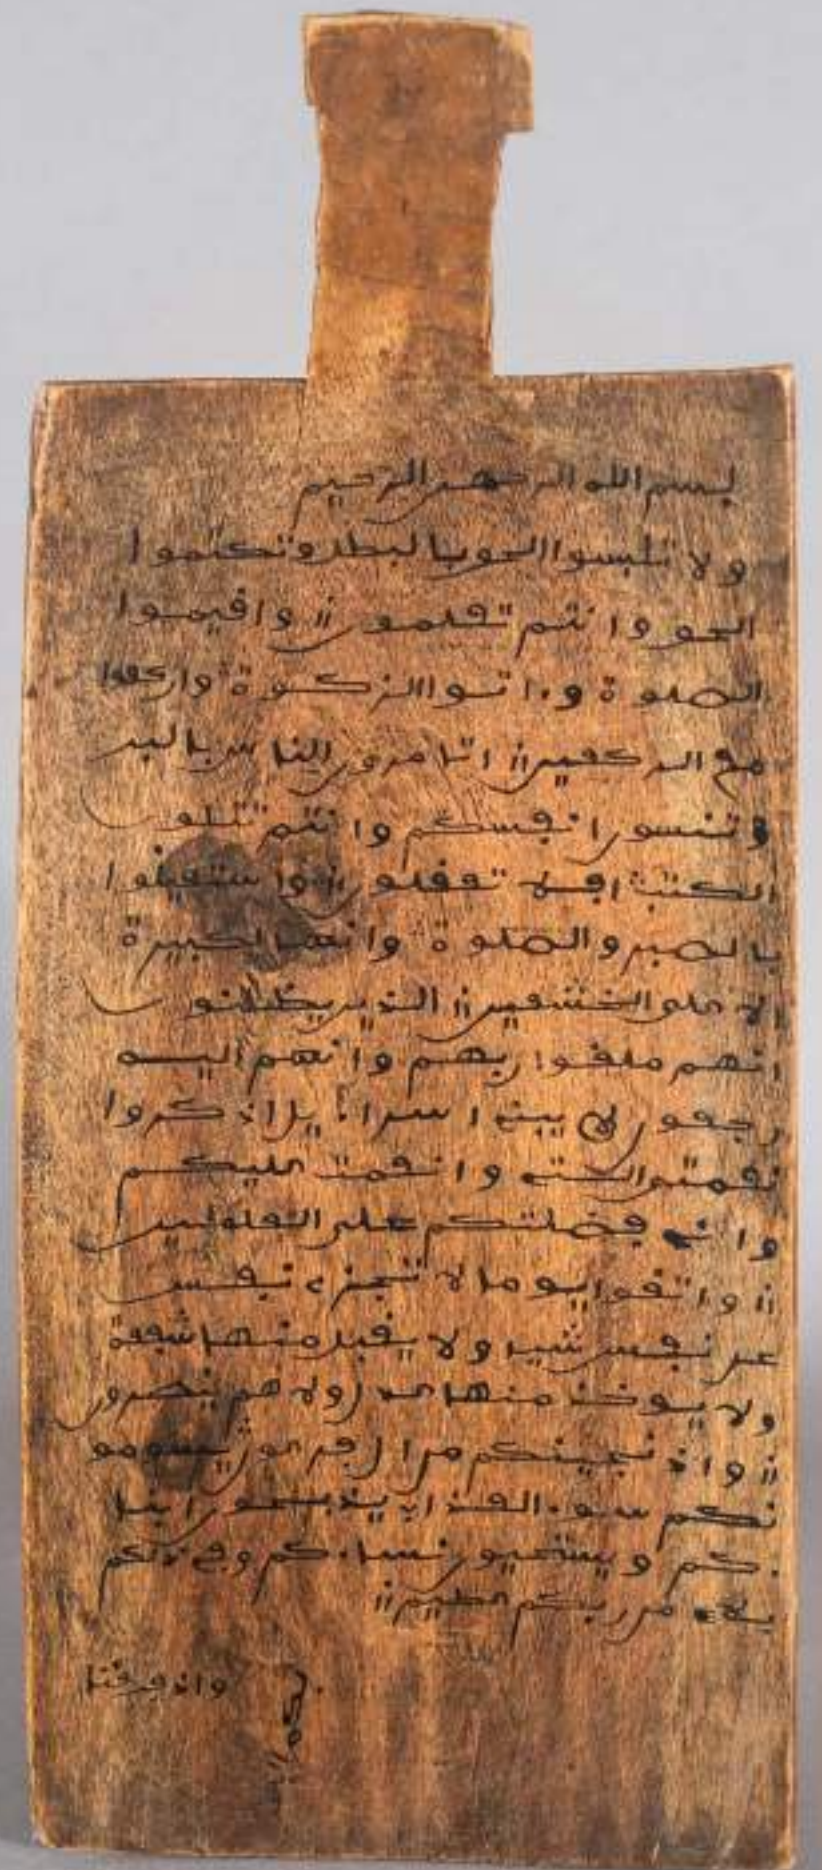 بسم الله الرحمن الرحيم
ولا تلبسوا الحق بالبطل وتكتموا
الحق وانتم تعلمون وافيموا
الصلوة وءاتوا الزكوة واركعوا
مع الركعين اتامرون الناس بالبر
وتنسون انفسكم وانتم تتلون
الكتب افلا تعقلون واستعينوا
بالصبر والصلوة وانها لكبيرة
الا على الخشعين الذين يظنون
انهم ملقوا ربهم وانهم اليه
رجعون يبنى اسراءيل اذكروا
نعمتى التى انعمت عليكم
وانى فضلتكم على العلمين
واتقوا يوما لا تجزى نفس
عن نفس شيا ولا يقبل منها شفعة
ولا يوخذ منها عدل ولا هم ينصرون
واذ نجينكم من ال فرعون يسومو
نكم سوء العذاب يذبحون ابنا
ءكم ويستحيون نساءكم وفى ذلكم
بلاء من ربكم عظيم
واذ فرقنا